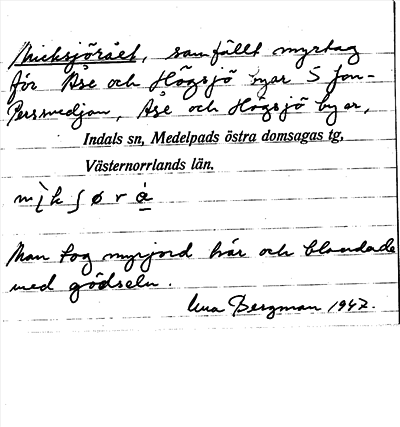 Micksjörået, samfällt myrtag
för Åse och Högsjö byar S Jon-
Persmedjan, Åse och Högsjö byar,
Indals sn, Medelpads östra domsagas tg,
Västernorrlands län.
Man tog myrjord här och blandade
med gödseln.
Una Bergman 1947.